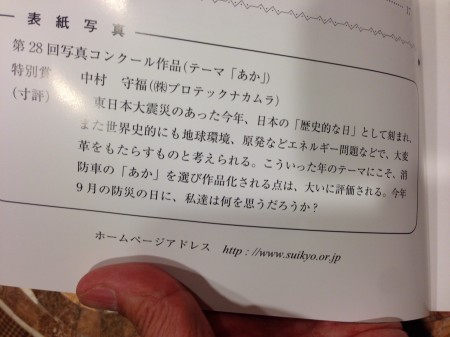 表紙写真
第28回写真コンクール作品(テーマ「あか」)
特別賞 中村 守福(㈱プロテックナカムラ)
(寸評) 東日本大震災のあった今年、日本の「歴史的な日」として刻まれ、
また世界史的にも地球環境、原発などエネルギー問題などで、大変
革をもたらすものと考えられる。こういった年のテーマにこそ、消
防車の「あか」を選び作品化される点は、大いに評価される。今年
9月の防災の日に、私達は何を思うだろうか?
ホームページアドレス http://www.suikyo.or.jp